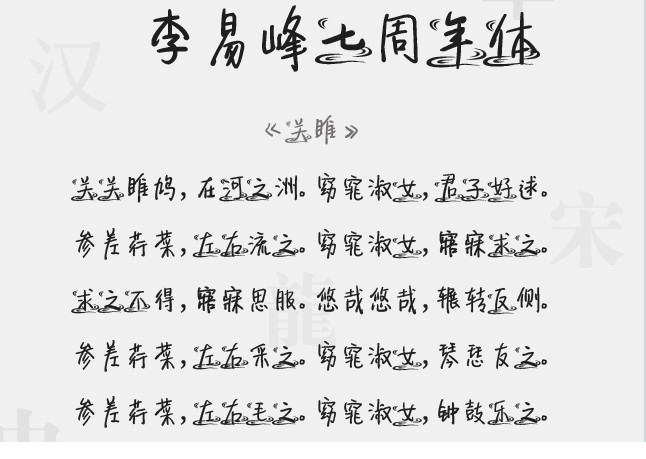 李易峰七周年体
《关雎》
关关雎鸠，在河之洲。窈窕淑女，君子好逑。
参差荇菜，左右流之。窈窕淑女，寤寐求之。
求之不得，寤寐思服。悠哉悠哉，辗转反侧。
参差荇菜，左右采之。窈窕淑女，琴瑟友之。
参差荇菜，左右毛之。窈窕淑女，钟鼓乐之。
汉
宋
龍